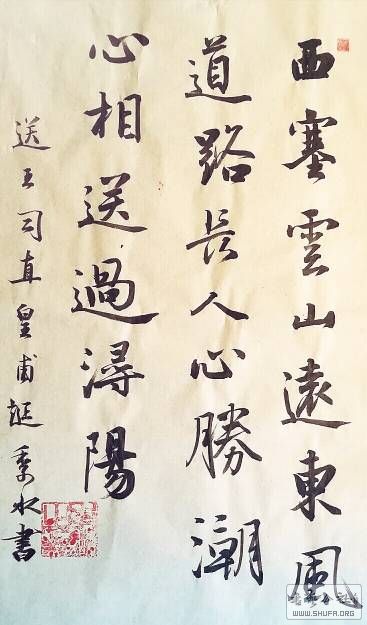 西塞雲山遠東風
道路長人心勝潮
心相送過潯陽
送王司直皇甫 水書
WWW.SHUFA.ORG